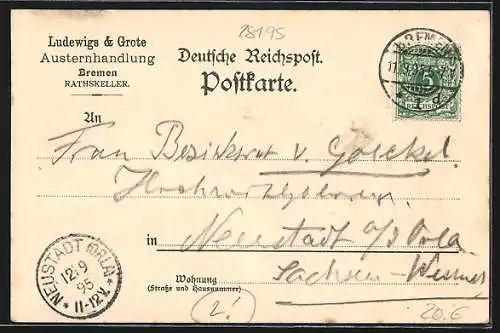 28195
Ludewigs & Grote
Austernhandlung
Bremen
RATHSKELLER.
Deutsche Reichspost.
Postkarte.
BREMEN
5
An
Frau Bezirksrat v. Goeckel
Hochwohlgeboren
in Neustadt a/d Orla
Sachsen-Weimar
Wohnung
(Straße und Hausnummer)
NEUSTADT (ORLA)
12 9
95
* 11-12V. *
20.€